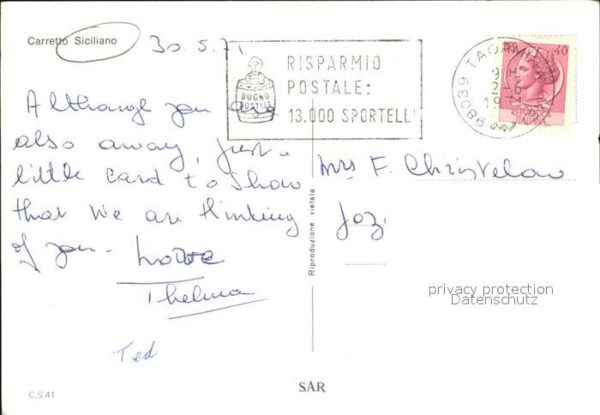 Carretto Siciliano
30.5.71.
RISPARMIO
POSTALE:
13.000 SPORTELLI
BUONO
POSTALE
98039 TAORMINA
9 H
2-6
1971
40
Although you are
also away, just a
little card to show
that we are thinking
of you - Love
Thelma
Ted
Mrs F. Christelow
privacy protection
Datenschutz
Riproduzione vietata
C.S.41
SAR